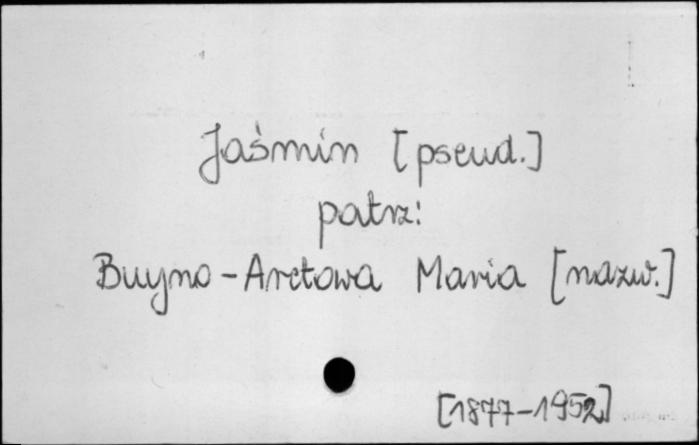 Jaśmin [pseud.]
patrz:
Buyno-Arctowa Maria [nazw.]
[1877-1952]